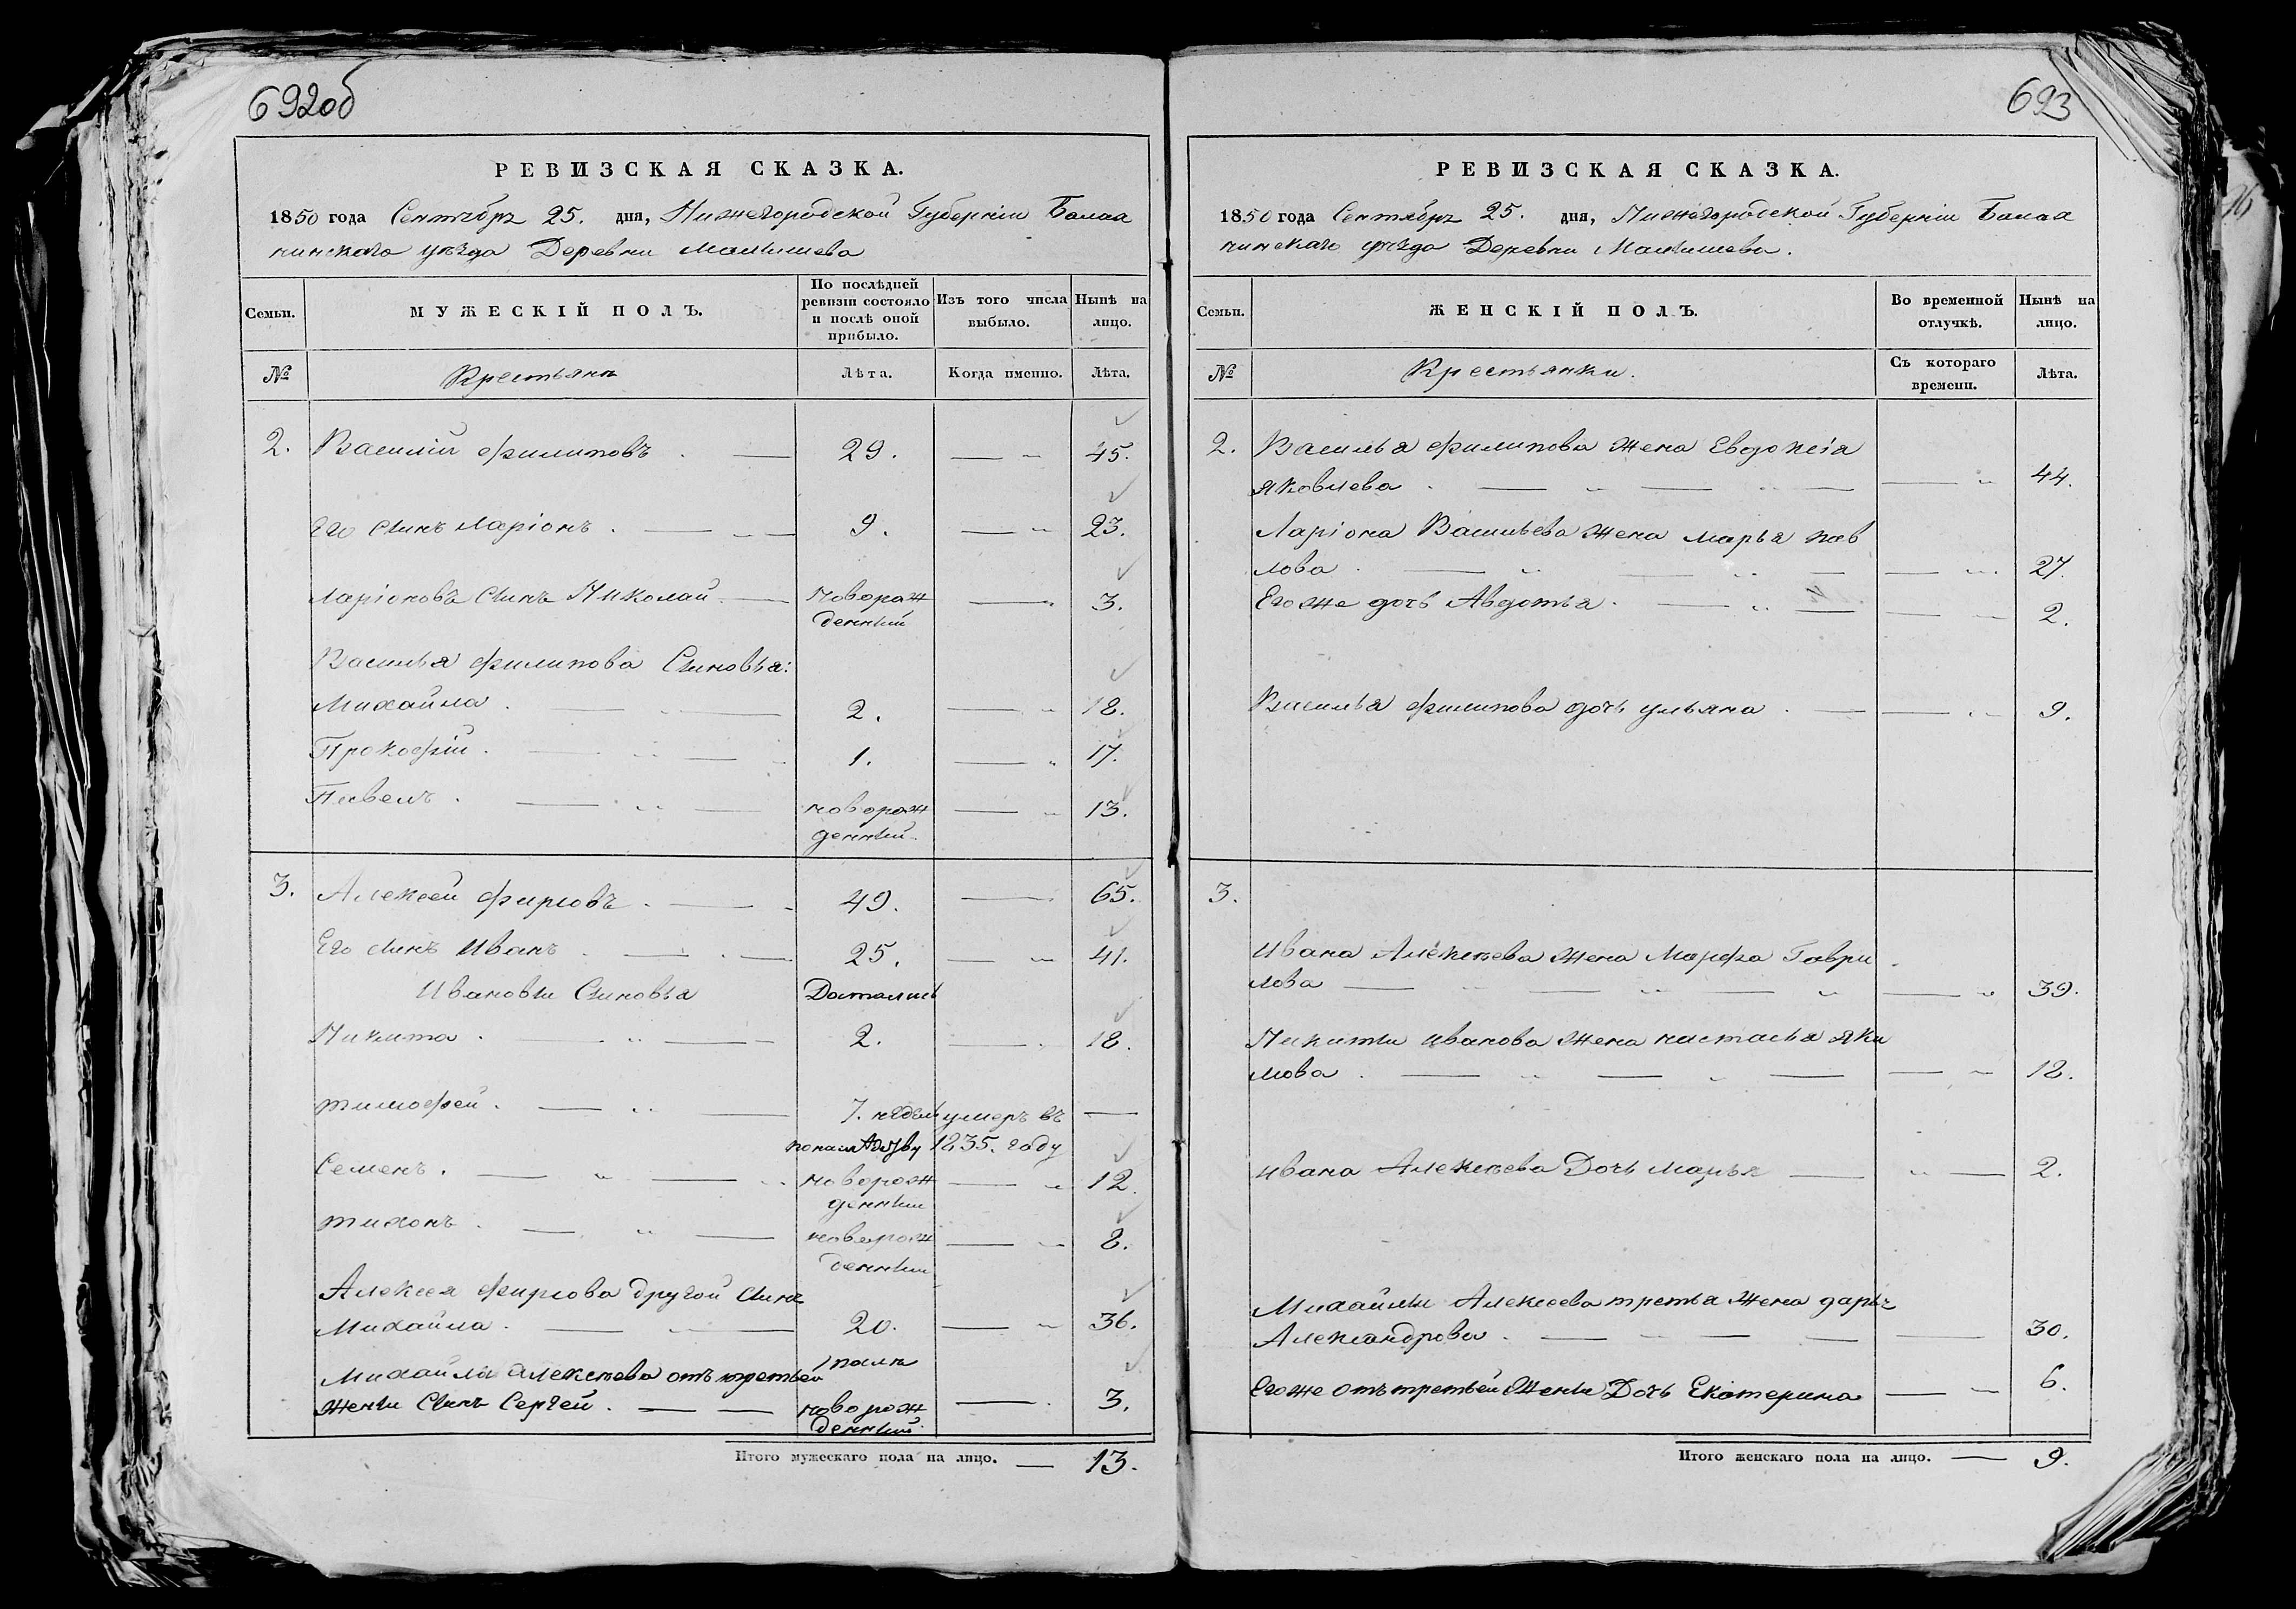 692об
РЕВИЗСКАЯ СКАЗКА.
1850 года Сентябрь 25. дня, Нижегородской Губерніи Балах
нинскаго уѣзда Деревни Малышева
Семьи. МУЖЕСКІЙ ПОЛЪ. По послѣдней ревизіи состояло и послѣ оной прибыло. Изъ того числа выбыло. Нынѣ на лицо.
№ Крестьяне Лѣта. Когда именно. Лѣта.
2. Василій Филиповъ . — 29. — 45.
Его сынъ Ларіонъ . — 9. — 23.
Ларіоновъ Сынъ Николай — новорож — 3.
денный
Василья Филипова Сыновья:
Михайла . — 2. — 18.
Прокофій . — 1. — 17.
Павелъ . — новорож — 13.
денный
3. Алексей Фирсовъ . — 49. — 65.
Его сынъ Иванъ . — 25. — 41.
Ивановы Сыновья
Никита . — 2. — 18.
Тимофей . — 7. недель умеръ въ —
1835. году
Семенъ . — новорож — 12.
денный
Тихонъ . — новорож — 8.
денный
Алексея Фирсова другой Сынъ
Михайла . — 20. — 36.
Михайлы Алексеева отъ третьей
жены Сынъ Сергей . — новорож — 3.
денный
Итого мужескаго пола на лицо. — 13.
693
РЕВИЗСКАЯ СКАЗКА.
1850 года Сентябрь 25. дня, Нижегородской Губерніи Балах
нинскаго уѣзда Деревни Малышева.
Семьи. ЖЕНСКІЙ ПОЛЪ. Во временной отлучкѣ. Нынѣ на лицо.
№ Крестьянки. Съ котораго времени. Лѣта.
2. Василья Филипова жена Евдоксія
Яковлева . — 44.
Ларіона Васильева жена Марья Пав
лова . — 27.
Его же дочь Авдотья . — 2.
Василья Филипова дочь Ульяна . — 9.
3.
Ивана Алексеева жена Марфа Гаври
лова — 39.
Никиты Иванова жена Настасья Яки
мова . — 18.
Ивана Алексеева Дочь Марья — 2.
Михайлы Алексеева третья жена Дарья
Александрова . — 30.
Его же отъ третьей жены Дочь Екатерина — 6.
Итого женскаго пола на лицо. — 9.